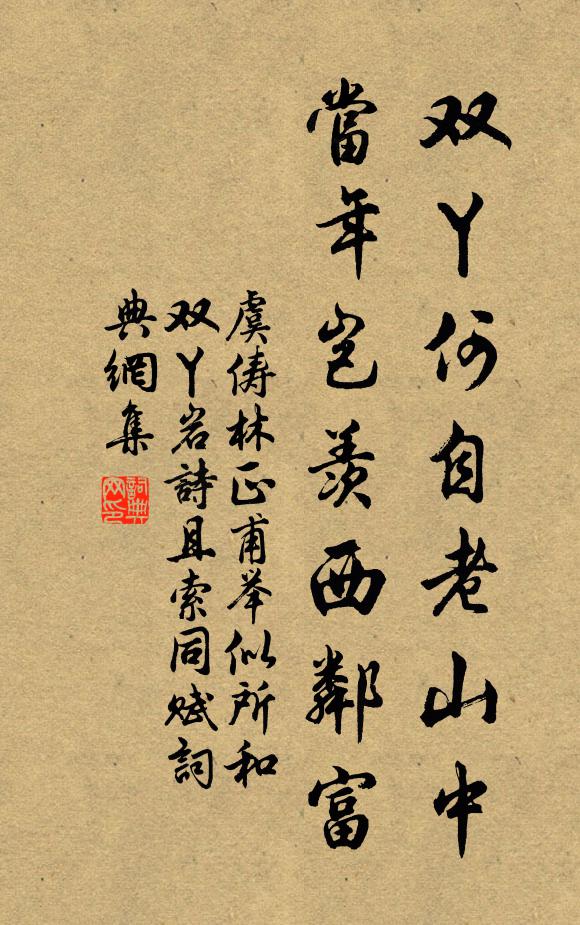 双丫何自老山中
當年岂羨西鄰富
虞儔林正甫举似所和
双丫岩詩且索同賦詞
典網集
詞典
网印